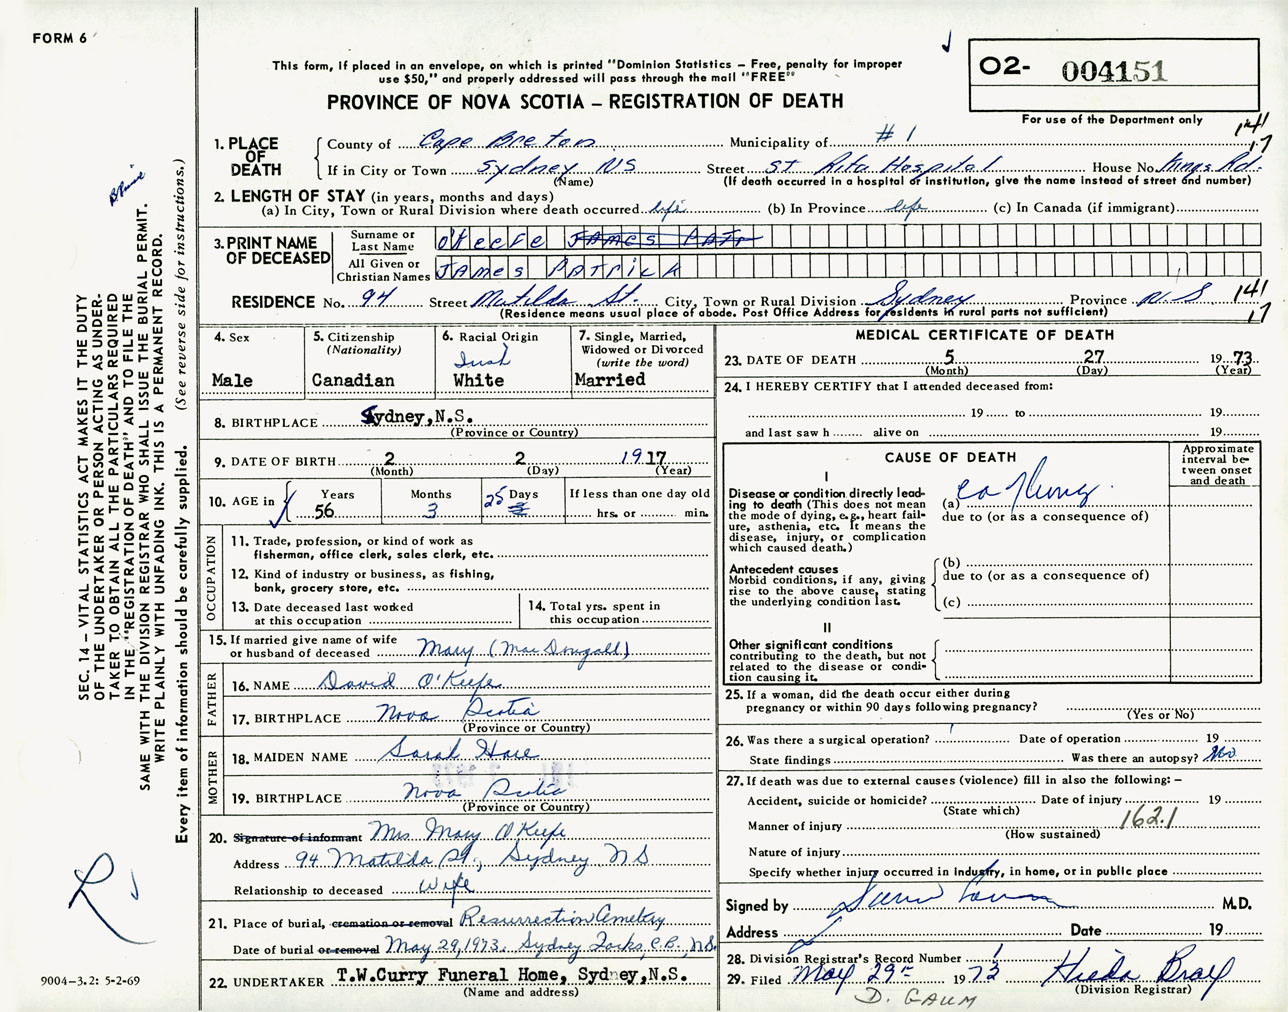 FORM 6
This form, if placed in an envelope, on which is printed "Dominion Statistics – Free, penalty for improper
use $50," and properly addressed will pass through the mail "FREE"
PROVINCE OF NOVA SCOTIA – REGISTRATION OF DEATH
O2- 004151
For use of the Department only
141
17
1. PLACE OF DEATH
County of Cape Breton Municipality of #1
If in City or Town Sydney NS Street St Rita Hospital House No. Kings Rd.
(Name) (If death occurred in a hospital or institution, give the name instead of street and number)
2. LENGTH OF STAY (in years, months and days)
(a) In City, Town or Rural Division where death occurred life (b) In Province life (c) In Canada (if immigrant)
3. PRINT NAME OF DECEASED
Surname or Last Name O'Keefe James Patr
All Given or Christian Names James Patrick
RESIDENCE No. 94 Street Matilda St. City, Town or Rural Division Sydney Province N S 141
(Residence means usual place of abode. Post Office Address for residents in rural parts not sufficient) 17
4. Sex
Male
5. Citizenship
(Nationality)
Canadian
6. Racial Origin
Irish
White
7. Single, Married,
Widowed or Divorced
(write the word)
Married
8. BIRTHPLACE Sydney,N.S.
(Province or Country)
9. DATE OF BIRTH 2 2 1917
(Month) (Day) (Year)
10. AGE in
Years Months Days If less than one day old
56 3 25 hrs. or min.
OCCUPATION
11. Trade, profession, or kind of work as
fisherman, office clerk, sales clerk, etc.
12. Kind of industry or business, as fishing,
bank, grocery store, etc.
13. Date deceased last worked
at this occupation
14. Total yrs. spent in
this occupation
15. If married give name of wife
or husband of deceased Mary (MacDougall)
FATHER
16. NAME David O'Keefe
17. BIRTHPLACE Nova Scotia
(Province or Country)
MOTHER
18. MAIDEN NAME Sarah Hare
19. BIRTHPLACE Nova Scotia
(Province or Country)
20. Signature of informant Mrs. Mary O'Keefe
Address 94 Matilda St., Sydney NS
Relationship to deceased Wife
21. Place of burial, cremation or removal Resurrection Cemetery
Date of burial or removal May 29, 1973. Sydney Forks, C.B., N.S.
22. UNDERTAKER T.W.Curry Funeral Home, Sydney,N.S.
(Name and address)
MEDICAL CERTIFICATE OF DEATH
23. DATE OF DEATH 5 27 1973
(Month) (Day) (Year)
24. I HEREBY CERTIFY that I attended deceased from:
19 to 19
and last saw h alive on 19
CAUSE OF DEATH
Approximate interval between onset and death
I
Disease or condition directly leading to death (This does not mean the mode of dying, e.g., heart failure, asthenia, etc. It means the disease, injury, or complication which caused death.)
(a) ca of lung
due to (or as a consequence of)
Antecedent causes
Morbid conditions, if any, giving rise to the above cause, stating the underlying condition last.
(b)
due to (or as a consequence of)
(c)
II
Other significant conditions
contributing to the death, but not related to the disease or condition causing it.
25. If a woman, did the death occur either during
pregnancy or within 90 days following pregnancy?
(Yes or No)
26. Was there a surgical operation? Date of operation 19
State findings Was there an autopsy? No
27. If death was due to external causes (violence) fill in also the following: –
Accident, suicide or homicide? Date of injury 19
(State which)
Manner of injury 162.1
(How sustained)
Nature of injury
Specify whether injury occurred in industry, in home, or in public place
Signed by M.D.
Address Date 19
28. Division Registrar's Record Number
29. Filed May 29th 1973 Hilda Bray
(Division Registrar)
D. GAUM
SEC. 14 – VITAL STATISTICS ACT MAKES IT THE DUTY
OF THE UNDERTAKER OR PERSON ACTING AS UNDER-
TAKER TO OBTAIN ALL THE PARTICULARS REQUIRED
IN THE "REGISTRATION OF DEATH" AND TO FILE THE
SAME WITH THE DIVISION REGISTRAR WHO SHALL ISSUE THE BURIAL PERMIT.
WRITE PLAINLY WITH UNFADING INK. THIS IS A PERMANENT RECORD.
Every item of information should be carefully supplied. (See reverse side for instructions.)
R
9004–3.2: 5-2-69